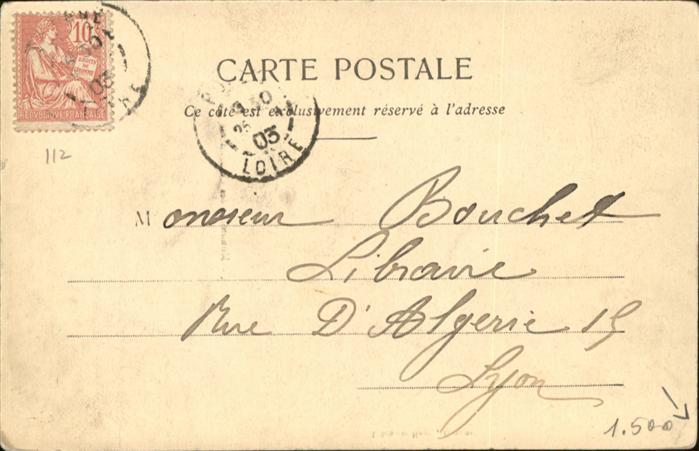 10
RÉPUBLIQUE FRANÇAISE
03
CARTE POSTALE
Ce côté est exclusivement réservé à l'adresse
25
03
LOIRE
112
Monsieur Bouchet
Librairie
Rue D'Algerie 15
Lyon
1.500